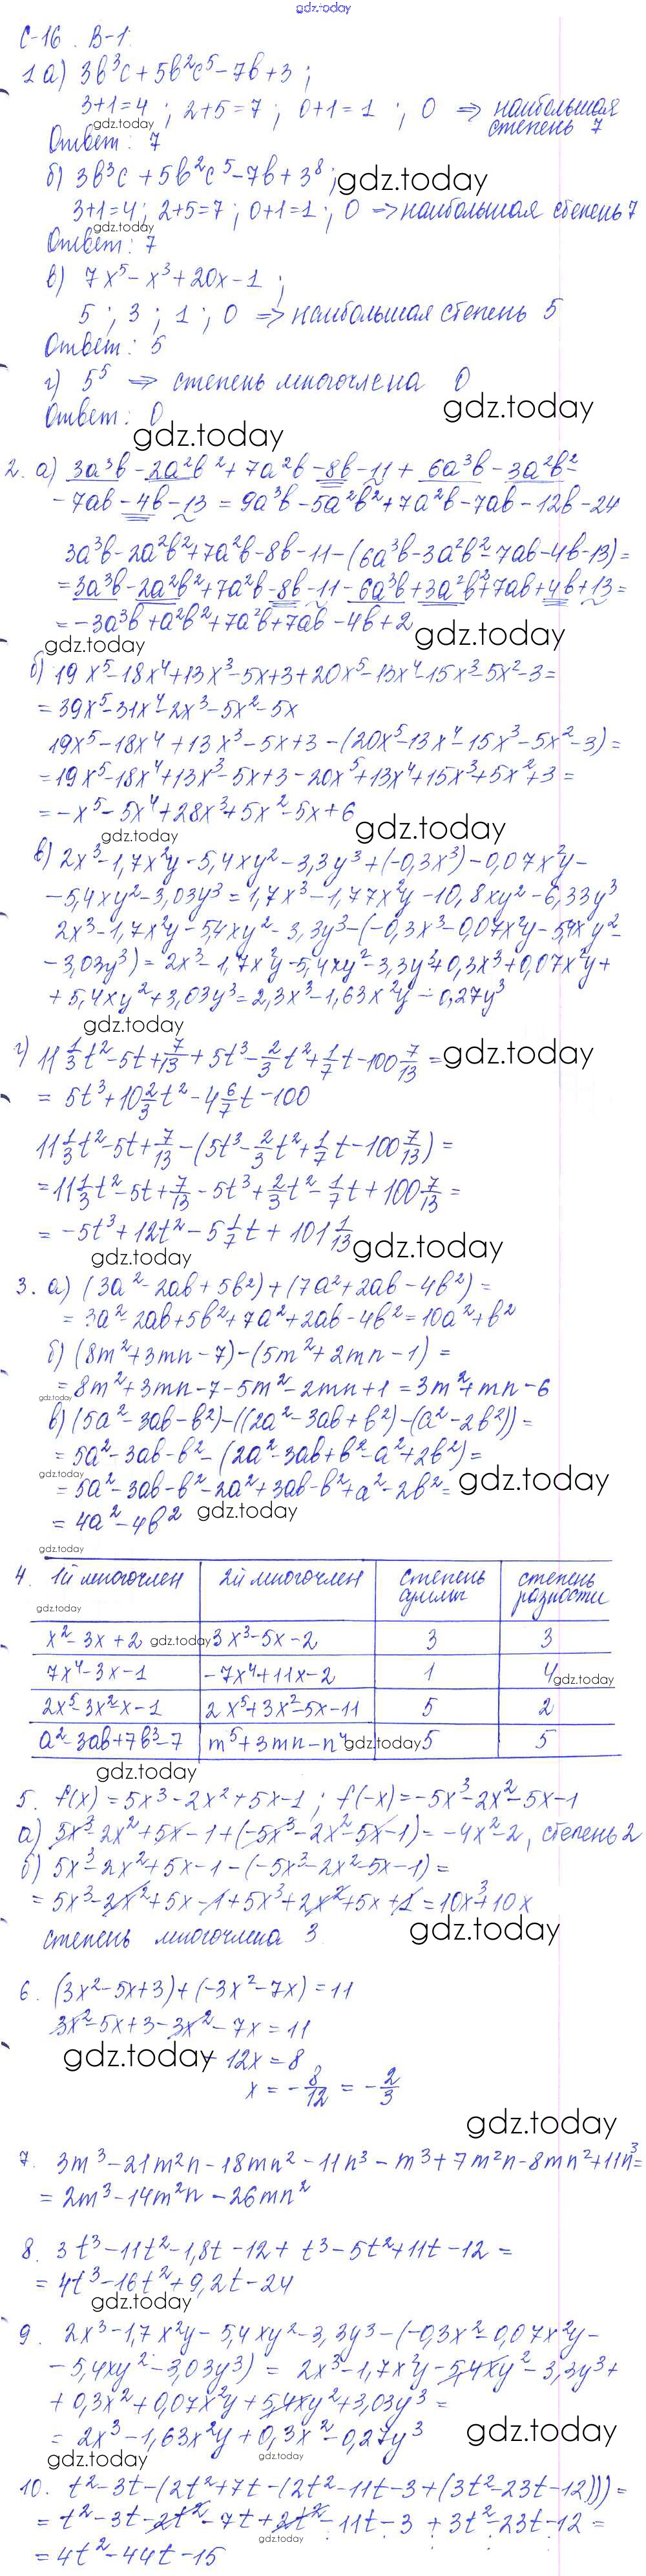 gdz.today
С-16. В-1.
1 а) 3b³c + 5b²c⁵ - 7b + 3;
3+1=4; 2+5=7; 0+1=1; 0 => наибольшая
gdz.today
степень 7
Ответ: 7
б) 3b³c + 5b²c⁵ - 7b + 3⁸; gdz.today
3+1=4; 2+5=7; 0+1=1; 0 => наибольшая степень 7
gdz.today
Ответ: 7
в) 7x⁵ - x³ + 20x - 1;
5; 3; 1; 0 => наибольшая степень 5
Ответ: 5
г) 5⁵ => степень многочлена 0
gdz.today
Ответ: 0
gdz.today
2. а) 3a³b - 2a²b² + 7a²b - 8b - 11 + 6a³b - 3a²b² -
- 7ab - 4b - 13 = 9a³b - 5a²b² + 7a²b - 7ab - 12b - 24
3a³b - 2a²b² + 7a²b - 8b - 11 - (6a³b - 3a²b² - 7ab - 4b - 13) =
= 3a³b - 2a²b² + 7a²b - 8b - 11 - 6a³b + 3a²b² + 7ab + 4b + 13 =
= -3a³b + a²b² + 7a²b + 7ab - 4b + 2
gdz.today gdz.today
б) 19x⁵ - 18x⁴ + 13x³ - 5x + 3 + 20x⁵ - 13x⁴ - 15x³ - 5x² - 3 =
= 39x⁵ - 31x⁴ - 2x³ - 5x² - 5x
19x⁵ - 18x⁴ + 13x³ - 5x + 3 - (20x⁵ - 13x⁴ - 15x³ - 5x² - 3) =
= 19x⁵ - 18x⁴ + 13x³ - 5x + 3 - 20x⁵ + 13x⁴ + 15x³ + 5x² + 3 =
= -x⁵ - 5x⁴ + 28x³ + 5x² - 5x + 6
gdz.today gdz.today
в) 2x³ - 1,7x²y - 5,4xy² - 3,3y³ + (-0,3x³) - 0,07x²y -
- 5,4xy² - 3,03y³ = 1,7x³ - 1,77x²y - 10,8xy² - 6,33y³
2x³ - 1,7x²y - 5,4xy² - 3,3y³ - (-0,3x³ - 0,07x²y - 5,4xy² -
- 3,03y³) = 2x³ - 1,7x²y - 5,4xy² - 3,3y³ + 0,3x³ + 0,07x²y +
+ 5,4xy² + 3,03y³ = 2,3x³ - 1,63x²y - 0,27y³
gdz.today
г) 11 1/3 t² - 5t + 7/13 + 5t³ - 2/3 t² + 1/7 t - 100 7/13 = gdz.today
= 5t³ + 10 2/3 t² - 4 6/7 t - 100
11 1/3 t² - 5t + 7/13 - (5t³ - 2/3 t² + 1/7 t - 100 7/13) =
= 11 1/3 t² - 5t + 7/13 - 5t³ + 2/3 t² - 1/7 t + 100 7/13 =
= -5t³ + 12t² - 5 1/7 t + 101 1/13
gdz.today gdz.today
3. а) (3a² - 2ab + 5b²) + (7a² + 2ab - 4b²) =
= 3a² - 2ab + 5b² + 7a² + 2ab - 4b² = 10a² + b²
б) (8m² + 3mn - 7) - (5m² + 2mn - 1) =
= 8m² + 3mn - 7 - 5m² - 2mn + 1 = 3m² + mn - 6
gdz.today
в) (5a² - 3ab - b²) - ((2a² - 3ab + b²) - (a² - 2b²)) =
= 5a² - 3ab - b² - (2a² - 3ab + b² - a² + 2b²) =
gdz.today
= 5a² - 3ab - b² - 2a² + 3ab - b² + a² - 2b² = gdz.today
= 4a² - 4b² gdz.today
gdz.today
4. 1й многочлен 2й многочлен степень суммы степень разности
gdz.today
x² - 3x + 2 gdz.today 3x³ - 5x - 2 3 3
7x⁴ - 3x - 1 -7x⁴ + 11x - 2 1 4 gdz.today
2x⁵ - 3x² - x - 1 2x⁵ + 3x² - 5x - 11 5 2
a² - 3ab + 7b³ - 7 m⁵ + 3mn - n⁴ gdz.today 5 5
gdz.today
5. f(x) = 5x³ - 2x² + 5x - 1; f(-x) = -5x³ - 2x² - 5x - 1
а) 5x³ - 2x² + 5x - 1 + (-5x³ - 2x² - 5x - 1) = -4x² - 2, степень 2
б) 5x³ - 2x² + 5x - 1 - (-5x³ - 2x² - 5x - 1) =
= 5x³ - 2x² + 5x - 1 + 5x³ + 2x² + 5x + 1 = 10x³ + 10x
степень многочлена 3 gdz.today
6. (3x² - 5x + 3) + (-3x² - 7x) = 11
3x² - 5x + 3 - 3x² - 7x = 11
gdz.today - 12x = 8
x = - 8/12 = - 2/3
gdz.today
7. 3m³ - 21m²n - 18mn² - 11n³ - m³ + 7m²n - 8mn² + 11n³ =
= 2m³ - 14m²n - 26mn²
8. 3t³ - 11t² - 1,8t - 12 + t³ - 5t² + 11t - 12 =
= 4t³ - 16t² + 9,2t - 24
gdz.today
9. 2x³ - 1,7x²y - 5,4xy² - 3,3y³ - (-0,3x² - 0,07x²y -
- 5,4xy² - 3,03y³) = 2x³ - 1,7x²y - 5,4xy² - 3,3y³ +
+ 0,3x² + 0,07x²y + 5,4xy² + 3,03y³ =
= 2x³ - 1,63x²y + 0,3x² - 0,27y³ gdz.today
gdz.today gdz.today
10. t² - 3t - (2t² + 7t - (2t² - 11t - 3 + (3t² - 23t - 12))) =
= t² - 3t - 2t² - 7t + 2t² - 11t - 3 + 3t² - 23t - 12 =
gdz.today
= 4t² - 44t - 15